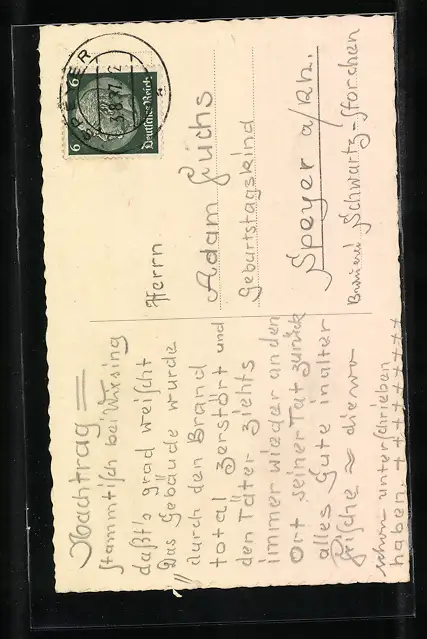 Nachtrag =
Stammtisch bei Wirsing
daßt's grad weischt
Das Gebäude wurde
durch den Brand
total zerstört und
den Täter ziehts
immer wieder an den
Ort seiner Tat zurück
alles Gute in alter
Frische ≈ die wo
schon unterschrieben
haben. +++++++++
SPEYER
3.8.37.12
a
6 6
Deutsches Reich
Herrn
Adam Fuchs
Geburtstagskind
Speyer a/Rh.
Brauerei Schwartz-Storchen